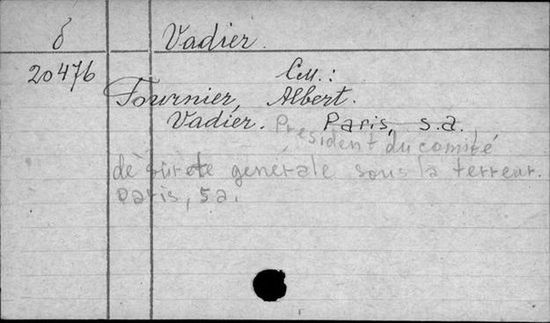 б Vadier.
20476 См.:
Fournier, Albert.
Vadier. Paris, s.a.
Président du comité
de sureté generale sous la terreur.
Paris, s a.